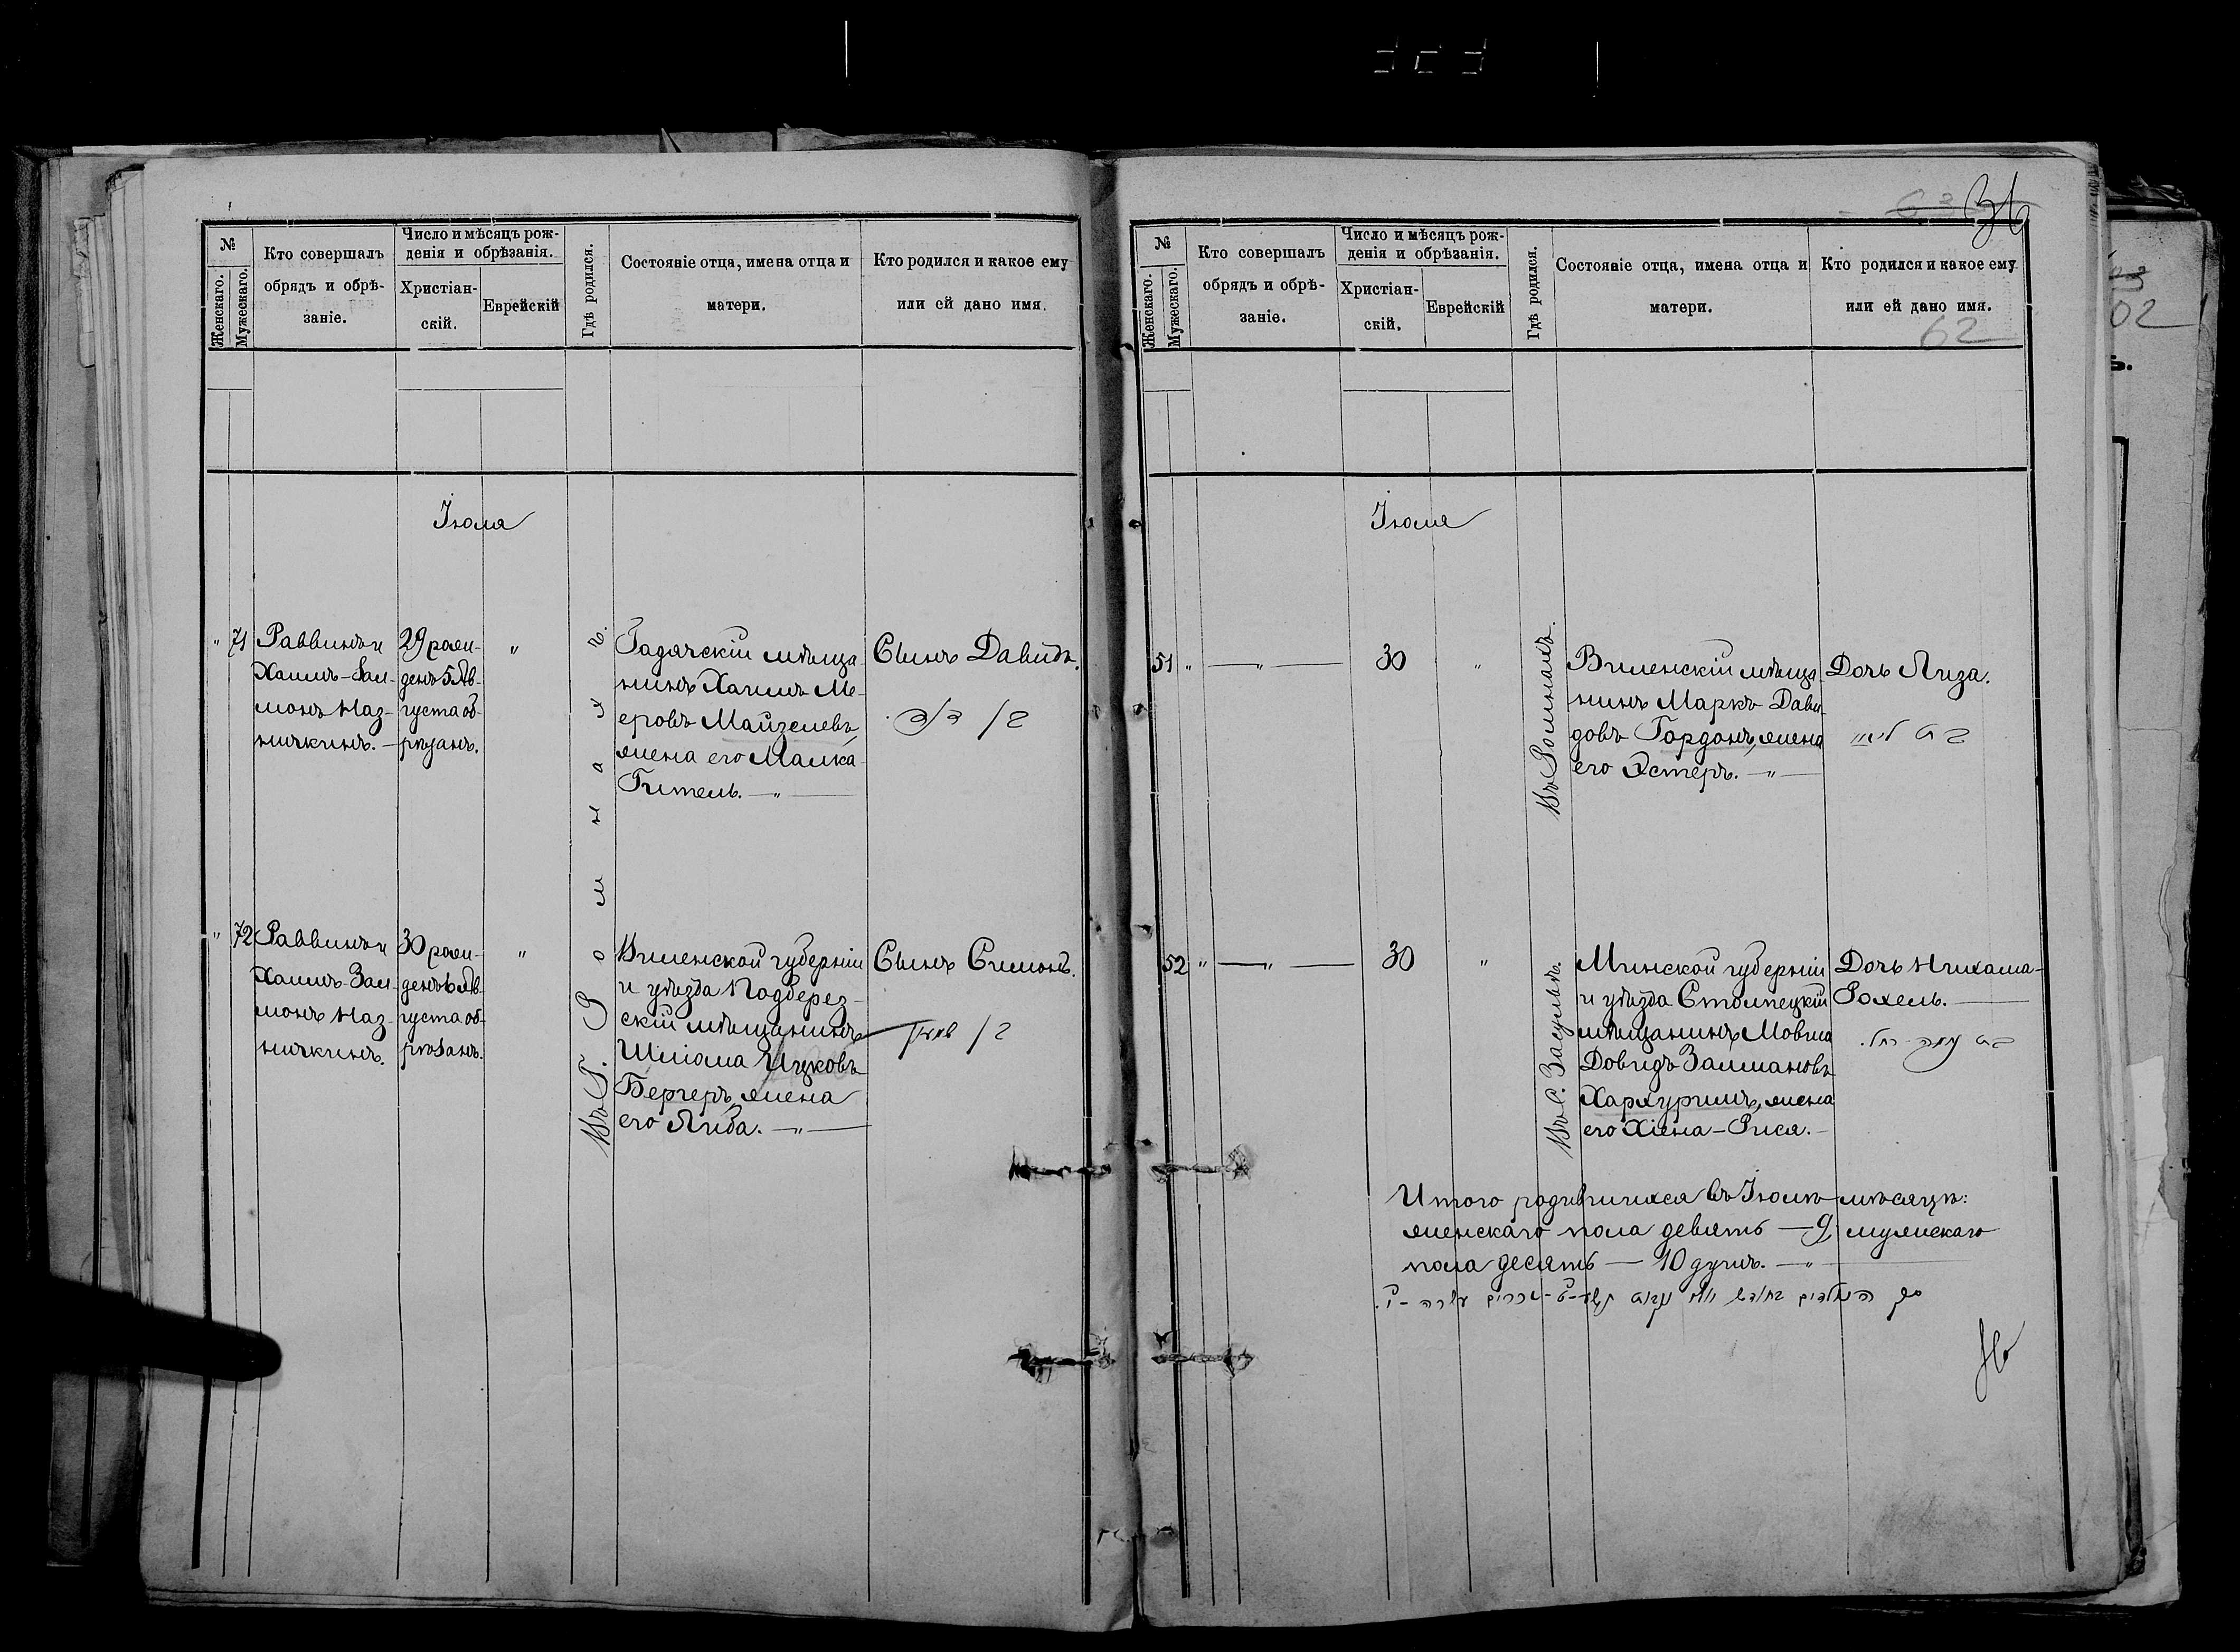 №
Женскаго.
Мужескаго.
Кто совершалъ
обрядъ и обрѣ-
заніе.
Число и мѣсяцъ рож-
денія и обрѣзанія.
Христіан-
скій.
Еврейскій
Гдѣ родился.
Состояніе отца, имена отца и
матери.
Кто родился и какое ему
или ей дано имя.
Іюля
" 71
Раввинъ и
Хаимъ-Зал-
монъ Наз-
ничкинъ.
29 рож-
денъ 5 Ав-
густа об-
рѣзанъ.
"
Въ Г. Ромнахъ.
Гадячскій мѣща
нинъ Хаимъ Ме-
еровъ Майзелевъ,
жена его Малка
Гитель. — " —
Сынъ Давидъ.
" 72
Раввинъ и
Хаимъ-Зал-
монъ Наз-
ничкинъ.
30 рож-
денъ 6 Ав-
густа об-
рѣзанъ.
"
Виленской губерніи
и уѣзда Подберез-
скій мѣщанинъ
Шліома Ицковъ
Бергеръ, жена
его Либа. — " —
Сынъ Симонъ.
36
№
Женскаго.
Мужескаго.
Кто совершалъ
обрядъ и обрѣ-
заніе.
Число и мѣсяцъ рож-
денія и обрѣзанія.
Христіан-
скій.
Еврейскій
Гдѣ родился.
Состояніе отца, имена отца и
матери.
Кто родился и какое ему
или ей дано имя.
62
Іюля
51 "
— " —
30
"
Въ Ромнахъ.
Виленскій мѣща
нинъ Маркъ Дави-
довъ Гордонъ, жена
его Эстеръ. — " —
Дочь Лиза.
52 "
— " —
30
"
Въ С. Засульѣ.
Минской губерніи
и уѣзда Столпецкій
мѣщанинъ Мовша
Довидъ Залмановъ
Хархуримъ, жена
его Хіена-Рися.
Дочь Нихама-
Рохель.
Итого родившихся въ Іюлѣ мѣсяцѣ:
женскаго пола девять — 9, мужскаго
пола десять — 10 душъ. — " —
02